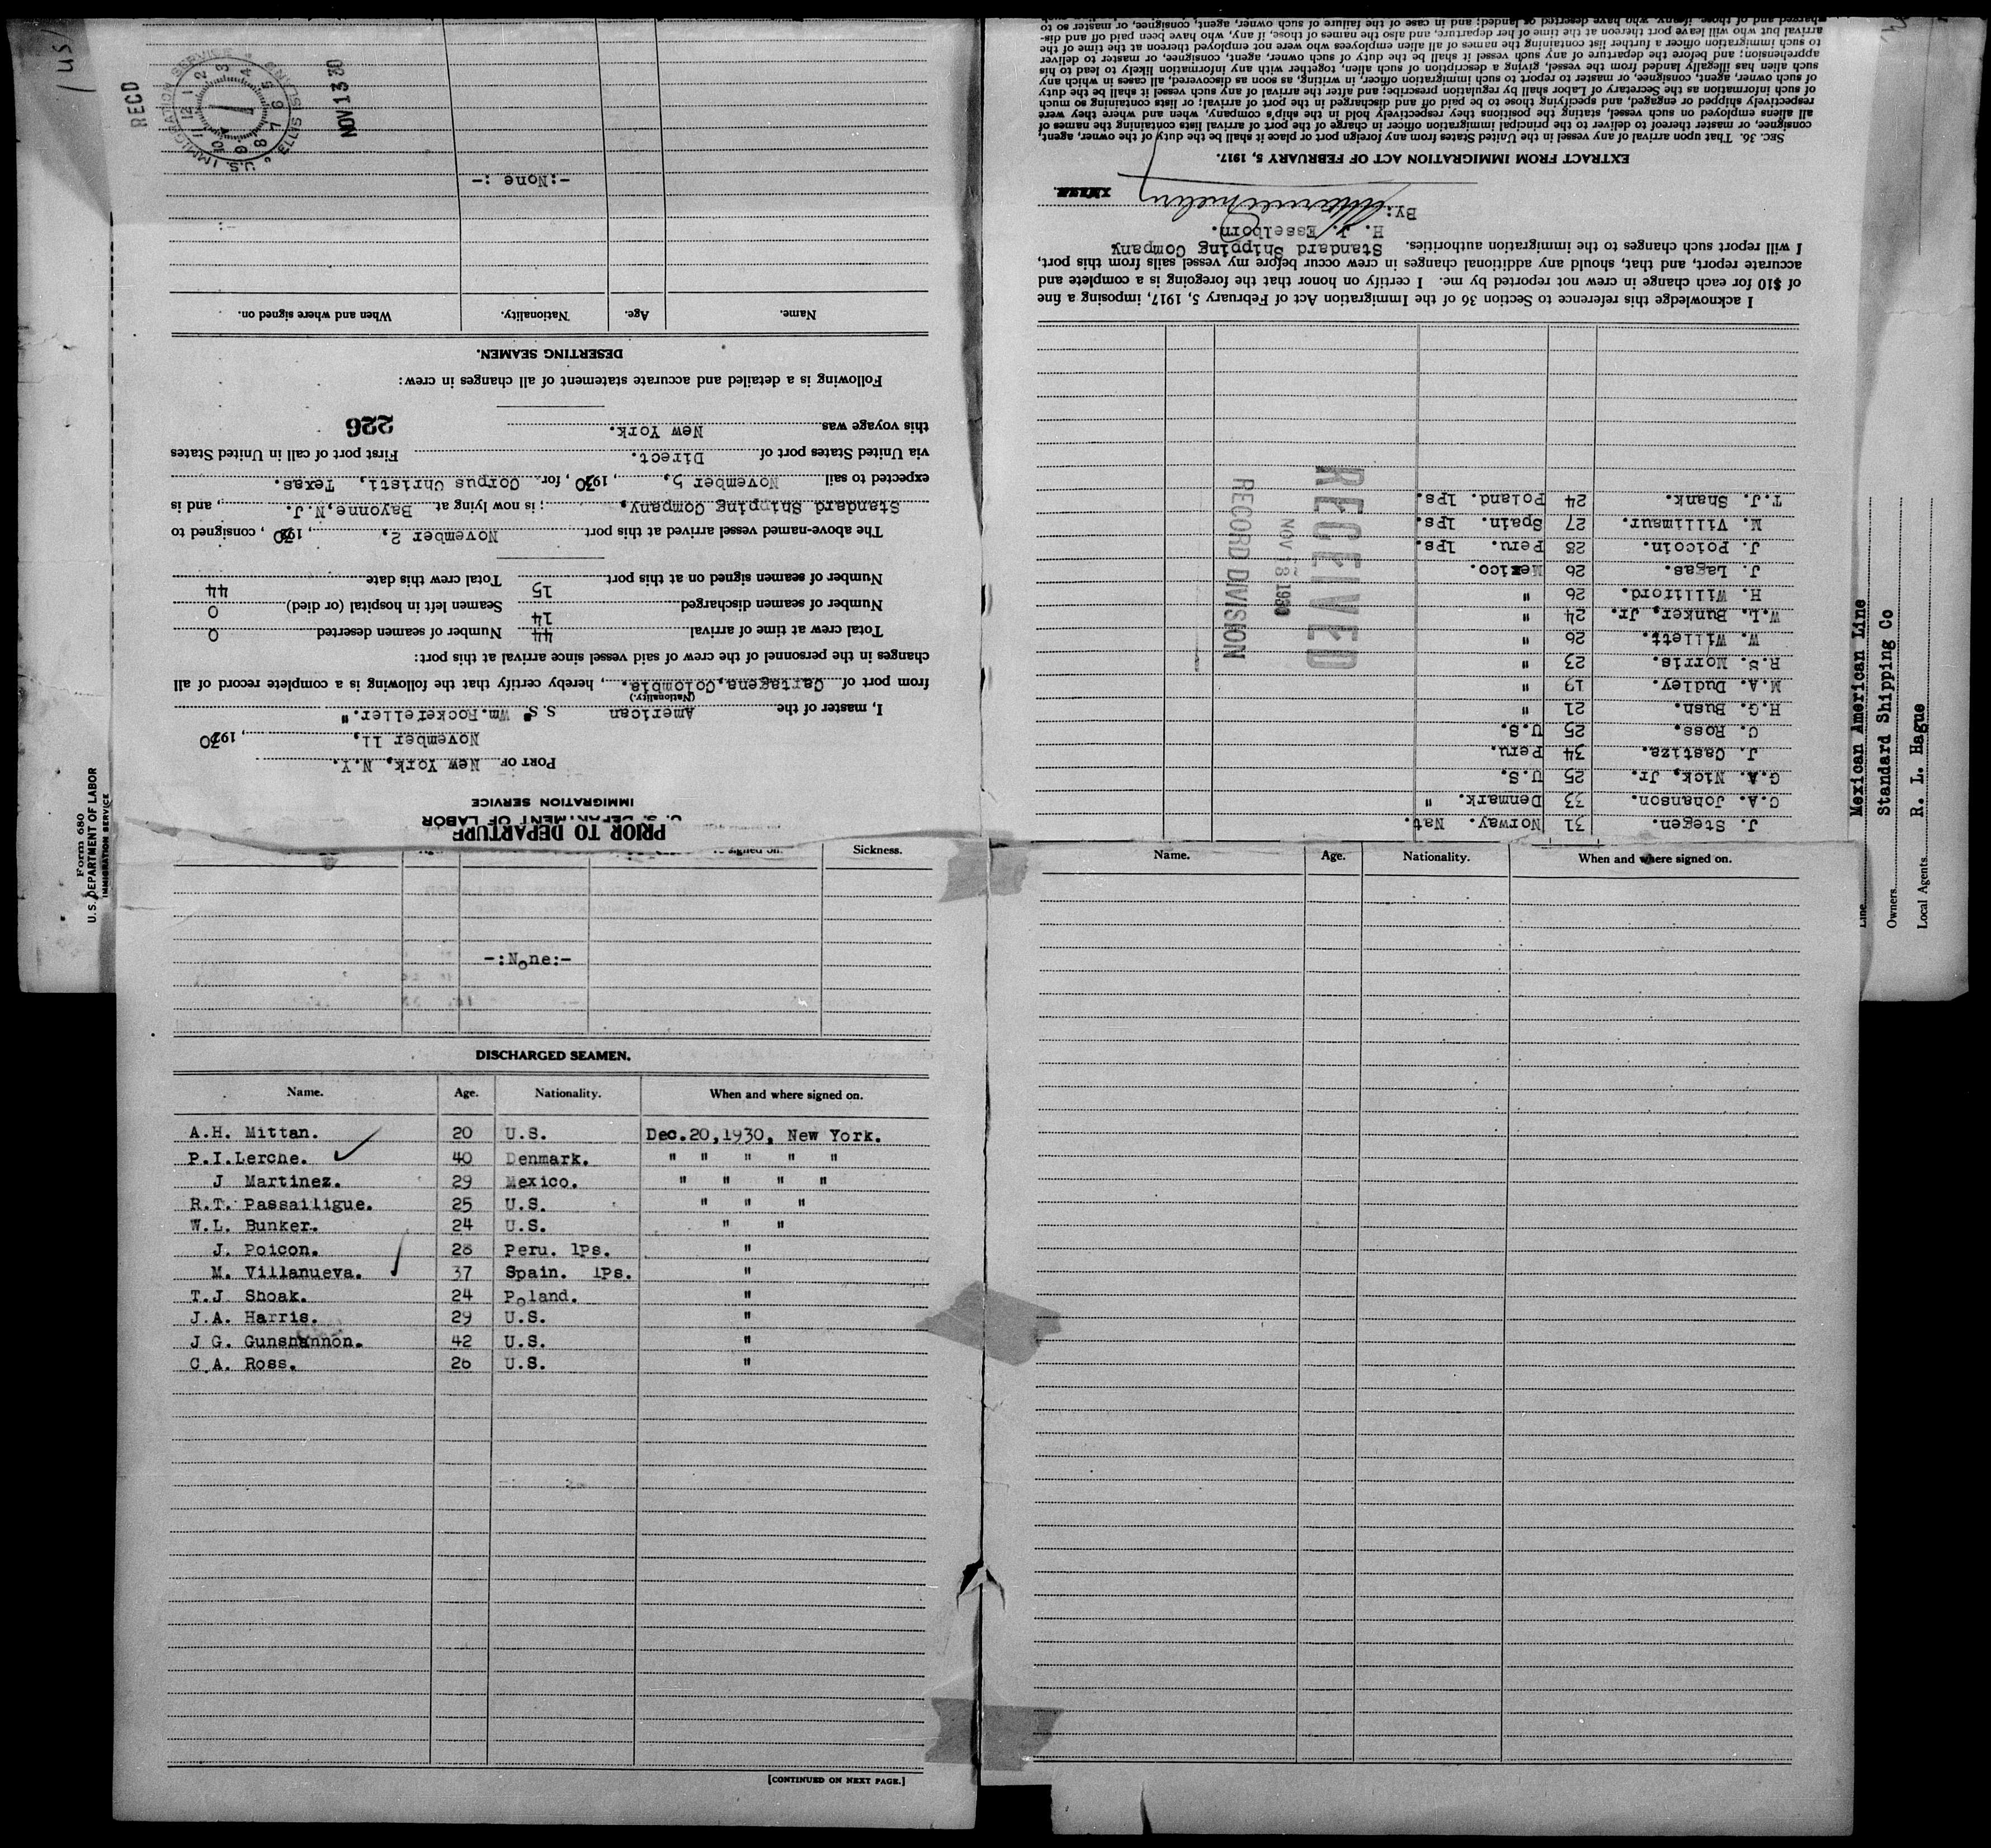 PRIOR TO DEPARTURE
U. S. DEPARTMENT OF LABOR
IMMIGRATION SERVICE
PORT OF New York, N.Y.
November 11, , 1930
I, master of the American S.S" Wm.Rockefeller."
(Nationality.)
from port of Cartagena,Colombia. , hereby certify that the following is a complete record of all
changes in the personnel of the crew of said vessel since arrival at this port:
Total crew at time of arrival 44 Number of seamen deserted 0
Number of seamen discharged 14 Seamen left in hospital (or died) 0
Number of seamen signed on at this port 15 Total crew this date 44
The above-named vessel arrived at this port November 2, , 1930 , consigned to
Standard Shipping Company, ; is now lying at Bayonne,N.J. , and is
expected to sail November 5, , 1930 , for Corpus Christi, Texas.
via United States port of Direct. First port of call in United States
this voyage was New York.
226
Following is a detailed and accurate statement of all changes in crew:
DESERTING SEAMEN.
Name. Age. Nationality. When and where signed on.
-:None :-
RECD
U.S. IMMIGRATION SERVICE ELLIS ISL'ND
12 1 2 3 4 5 6 7 8 9 10 11
NOV 13 30
Form 680
U.S. DEPARTMENT OF LABOR
IMMIGRATION SERVICE
Sickness.
-:None:-
DISCHARGED SEAMEN.
Name. Age. Nationality. When and where signed on.
A.H. Mittan. 20 U.S. Dec.20,1930, New York.
P.I.Lerche. 40 Denmark. " " " " "
J Martinez. 29 Mexico. " " " "
R.T. Passailigue. 25 U.S. " " "
W.L. Bunker. 24 U.S. " "
J. Poicon. 28 Peru. 1Ps. "
M. Villanueva. 37 Spain. 1Ps. "
T.J Shoak. 24 Poland. "
J.A. Harris. 29 U.S. "
J G. Gunshannon. 42 U.S. "
C A. Ross. 26 U.S. "
[CONTINUED ON NEXT PAGE.]
J. Stegen. 31 Norway. Nat.
C.A. Johanson. 33 Denmark. "
G.A. Nick, Jr. 25 U.S.
J. Castiza. 34 Peru.
C. Ross. 25 U.S.
H.G. Bush. 21 "
M.A. Dudley. 19 "
R.S. Morris. 23 "
W. Willett. 26 "
W.L. Bunker, Jr. 24 "
H. Williford. 26 "
J. Lagas. 26 Mexico.
J. Poicoin. 28 Peru. 1Ps.
M. Villimaur. 27 Spain. 1Ps.
T.J. Shank. 24 Poland. 1Ps.
RECEIVED
NOV 28 1930
RECORD DIVISION
I acknowledge this reference to Section 36 of the Immigration Act of February 5, 1917, imposing a fine
of $10 for each change in crew not reported by me. I certify on honor that the foregoing is a complete and
accurate report, and that, should any additional changes in crew occur before my vessel sails from this port,
I will report such changes to the immigration authorities. Standard Shipping Company
H. J. Esselborn.
By:
EXTRACT FROM IMMIGRATION ACT OF FEBRUARY 5, 1917.
SEC. 36. That upon arrival of any vessel in the United States from any foreign port or place it shall be the duty of the owner, agent,
consignee, or master thereof to deliver to the principal immigration officer in charge of the port of arrival lists containing the names of
all aliens employed on such vessel, stating the positions they respectively hold in the ship's company, when and where they were
respectively shipped or engaged, and specifying those to be paid off and discharged in the port of arrival; or lists containing so much
of such information as the Secretary of Labor shall by regulation prescribe; and after the arrival of any such vessel it shall be the duty
of such owner, agent, consignee, or master to report to such immigration officer, in writing, as soon as discovered, all cases in which any
such alien has illegally landed from the vessel, giving a description of such alien, together with any information likely to lead to his
apprehension; and before the departure of any such vessel it shall be the duty of such owner, agent, consignee, or master to deliver
to such immigration officer a further list containing the names of all alien employees who were not employed thereon at the time of the
arrival but who will leave port thereon at the time of her departure, and also the names of those, if any, who have been paid off and dis-
charged and of those, if any, who have deserted or landed; and in case of the failure of such owner, agent, consignee, or master so to
Name. Age. Nationality. When and where signed on.
Line Mexican American Line
Owners Standard Shipping Co
Local Agents R. L. Hague